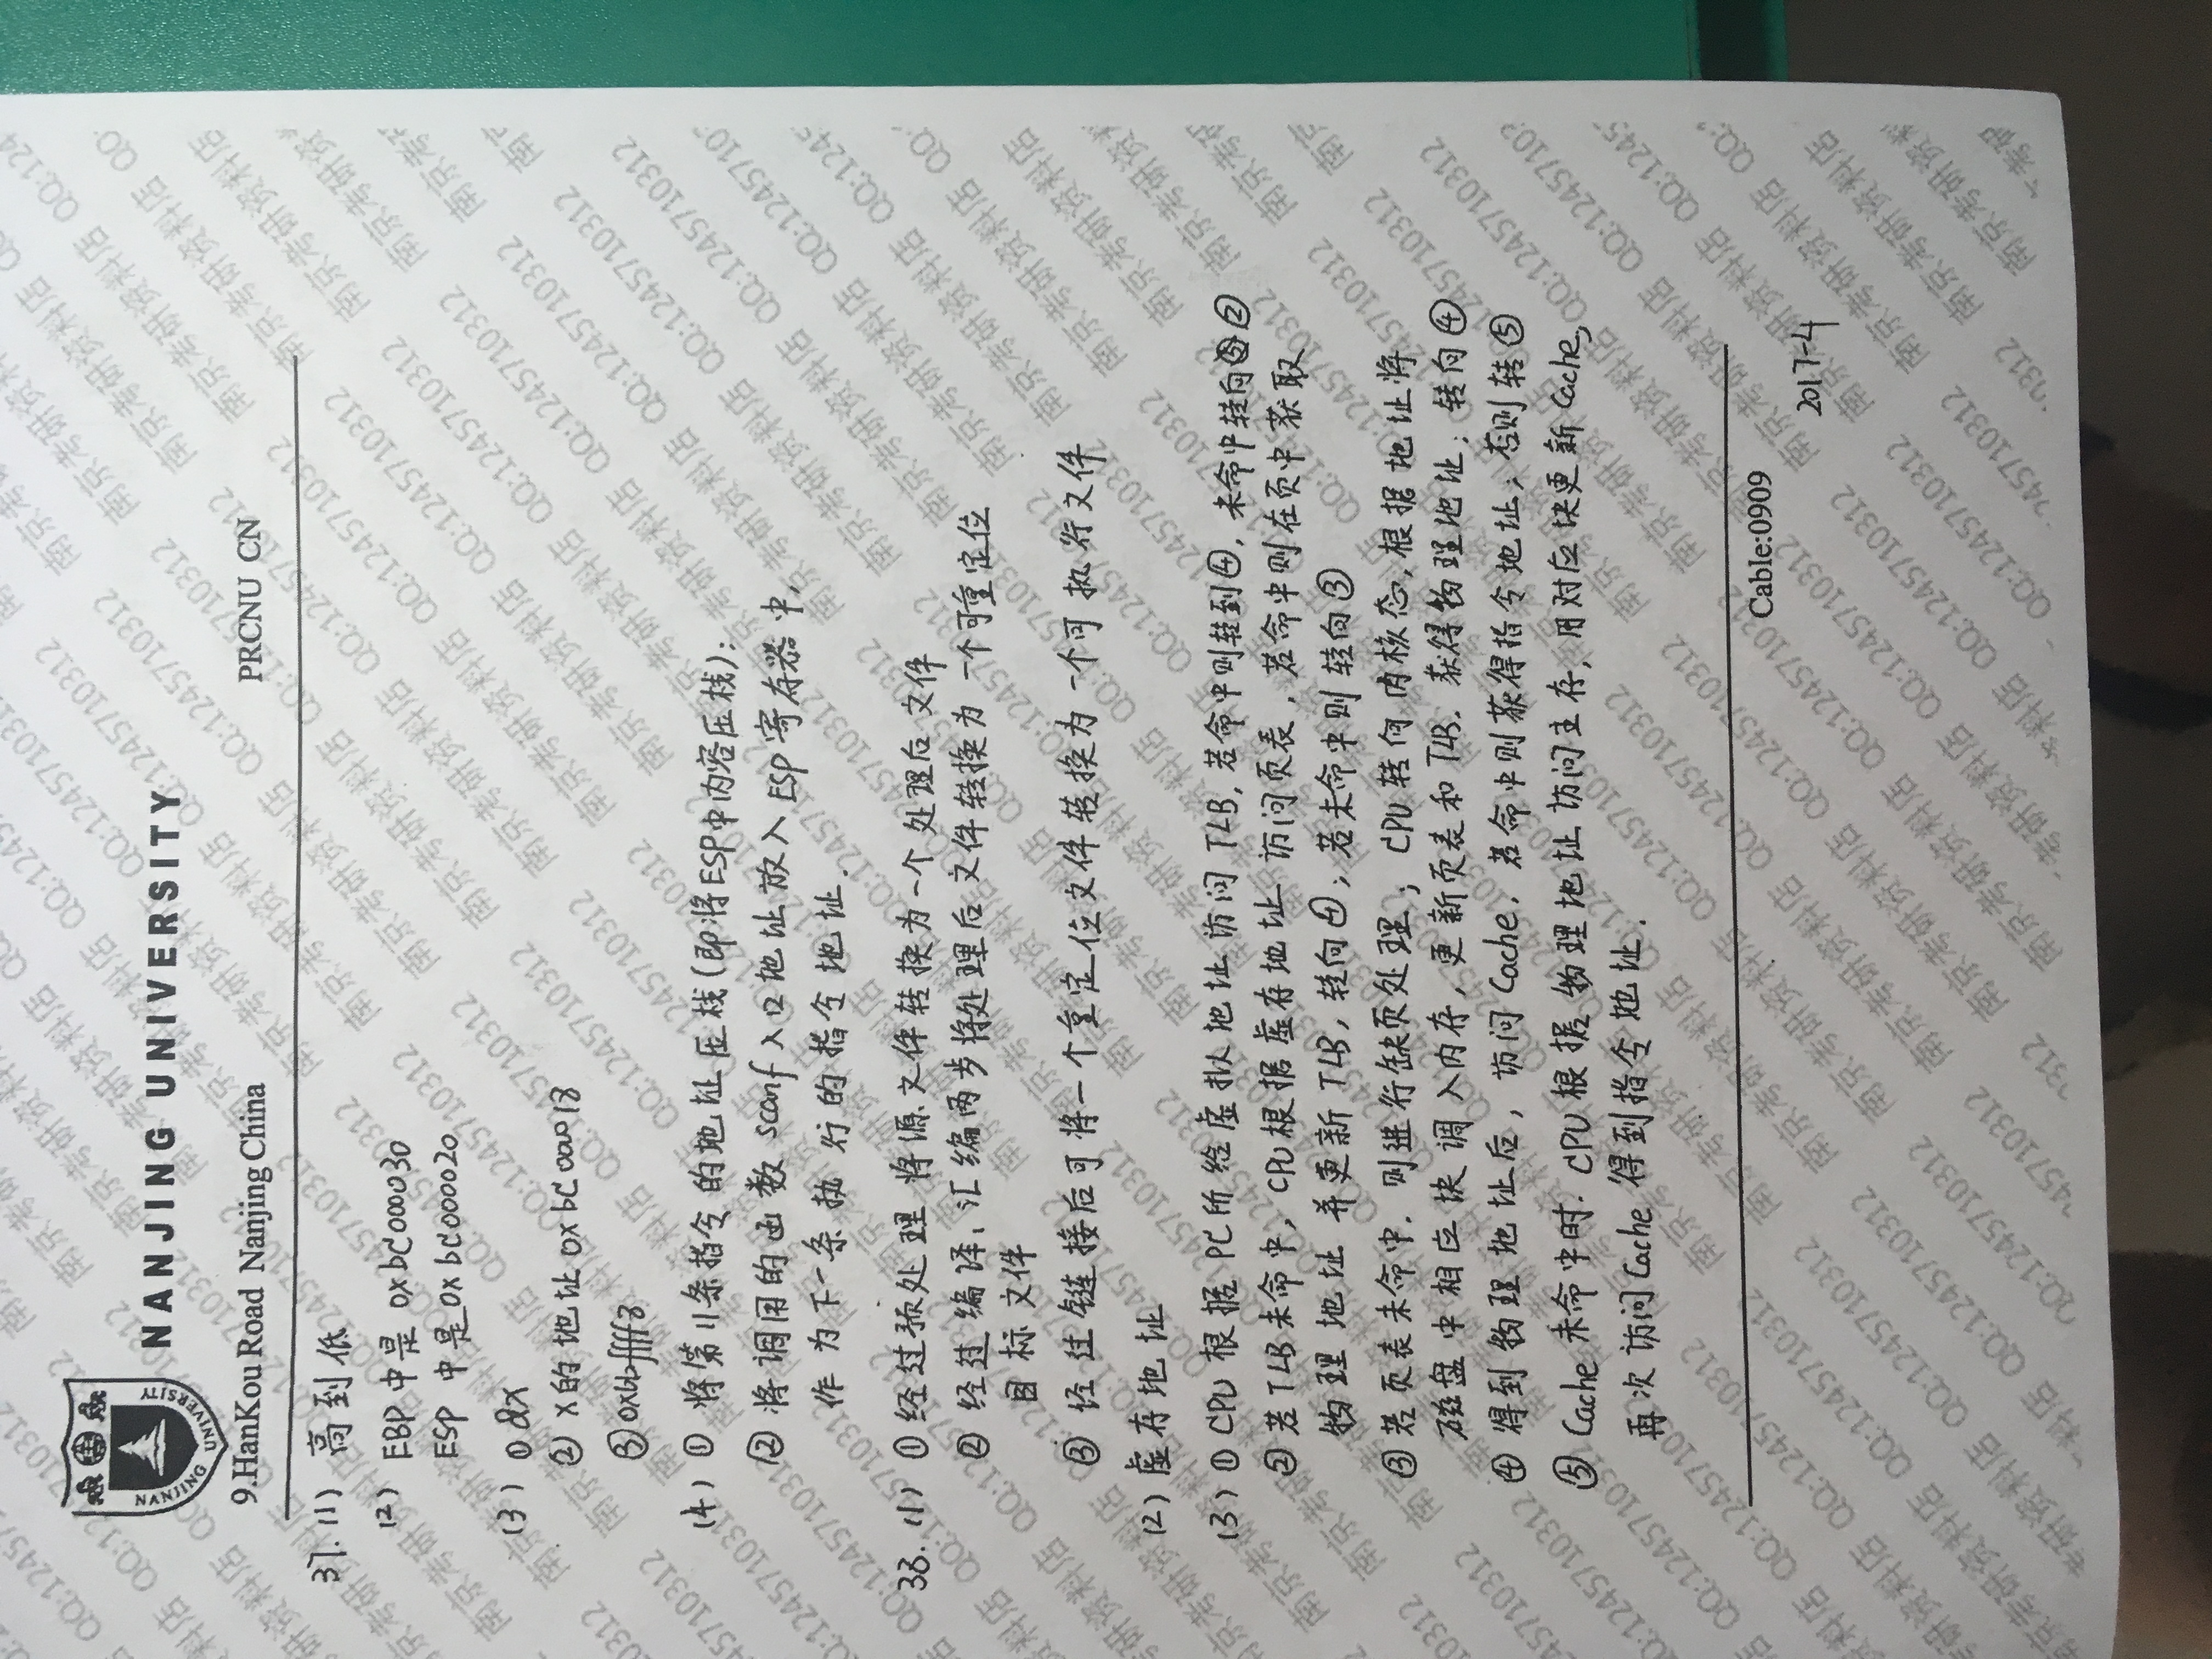 NANJING UNIVERSITY
9.HanKou Road Nanjing China PRCNU CN
37. (1) 高到低
(2) EBP中是 0xbC000030
ESP 中是 0xbC000020
(3) ① &x
② x的地址 0xbC000018
③
(4) ① 将第11条指令的地址压栈(即将ESP中内容压栈);
② 将调用的函数 scanf 入口地址放入 ESP 寄存器中,
作为下一条执行的指令地址.
38. (1) ① 经过预处理将源文件转换为一个处理后文件
② 经过编译、汇编两步将处理后文件转换为一个可重定位
目标文件
③ 经过链接后可将一个重定位文件转换为一个可执行文件
(2) 虚存地址
(3) ① CPU根据PC所给虚拟地址访问TLB, 若命中则转到④, 未命中转向②
② 若TLB未命中, CPU根据虚存地址访问页表, 若命中则在页中获取
物理地址并更新TLB, 转向④; 若未命中则转向③
③ 若页表未命中. 则进行缺页处理; CPU转向内核态, 根据地址将
磁盘中相应块调入内存, 更新页表和TLB. 获得物理地址; 转向④
④ 得到物理地址后, 访问Cache. 若命中则获得指令地址; 否则转⑤
⑤ Cache未命中时. CPU根据物理地址访问主存, 用对应块更新Cache,
再次访问Cache得到指令地址.
Cable:0909
2017-4
南京考研资料店 QQ:1245710312